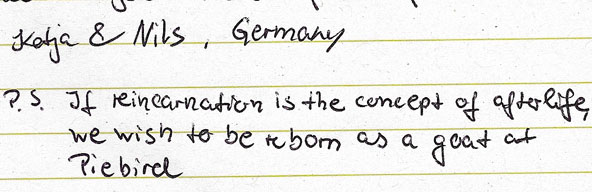 Katja & Nils, Germany
P.S. If reincarnation is the concept of afterlife,
we wish to be reborn as a goat at
Piebird